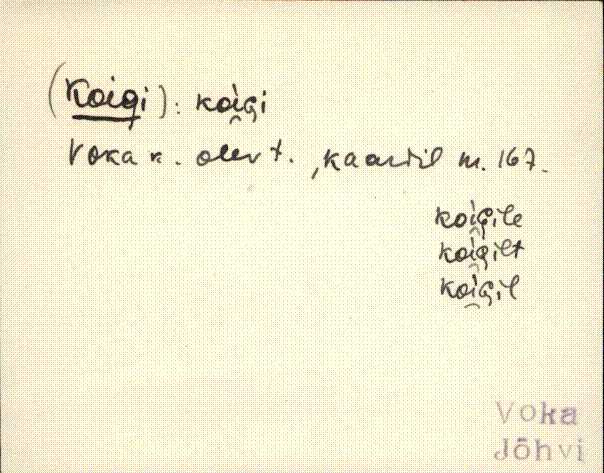 (Koigi): koi̯gi
Voka k. olev t., kaardil nr. 167.
koi̯gile
koi̯gilt
koi̯gil
Voka
Jõhvi